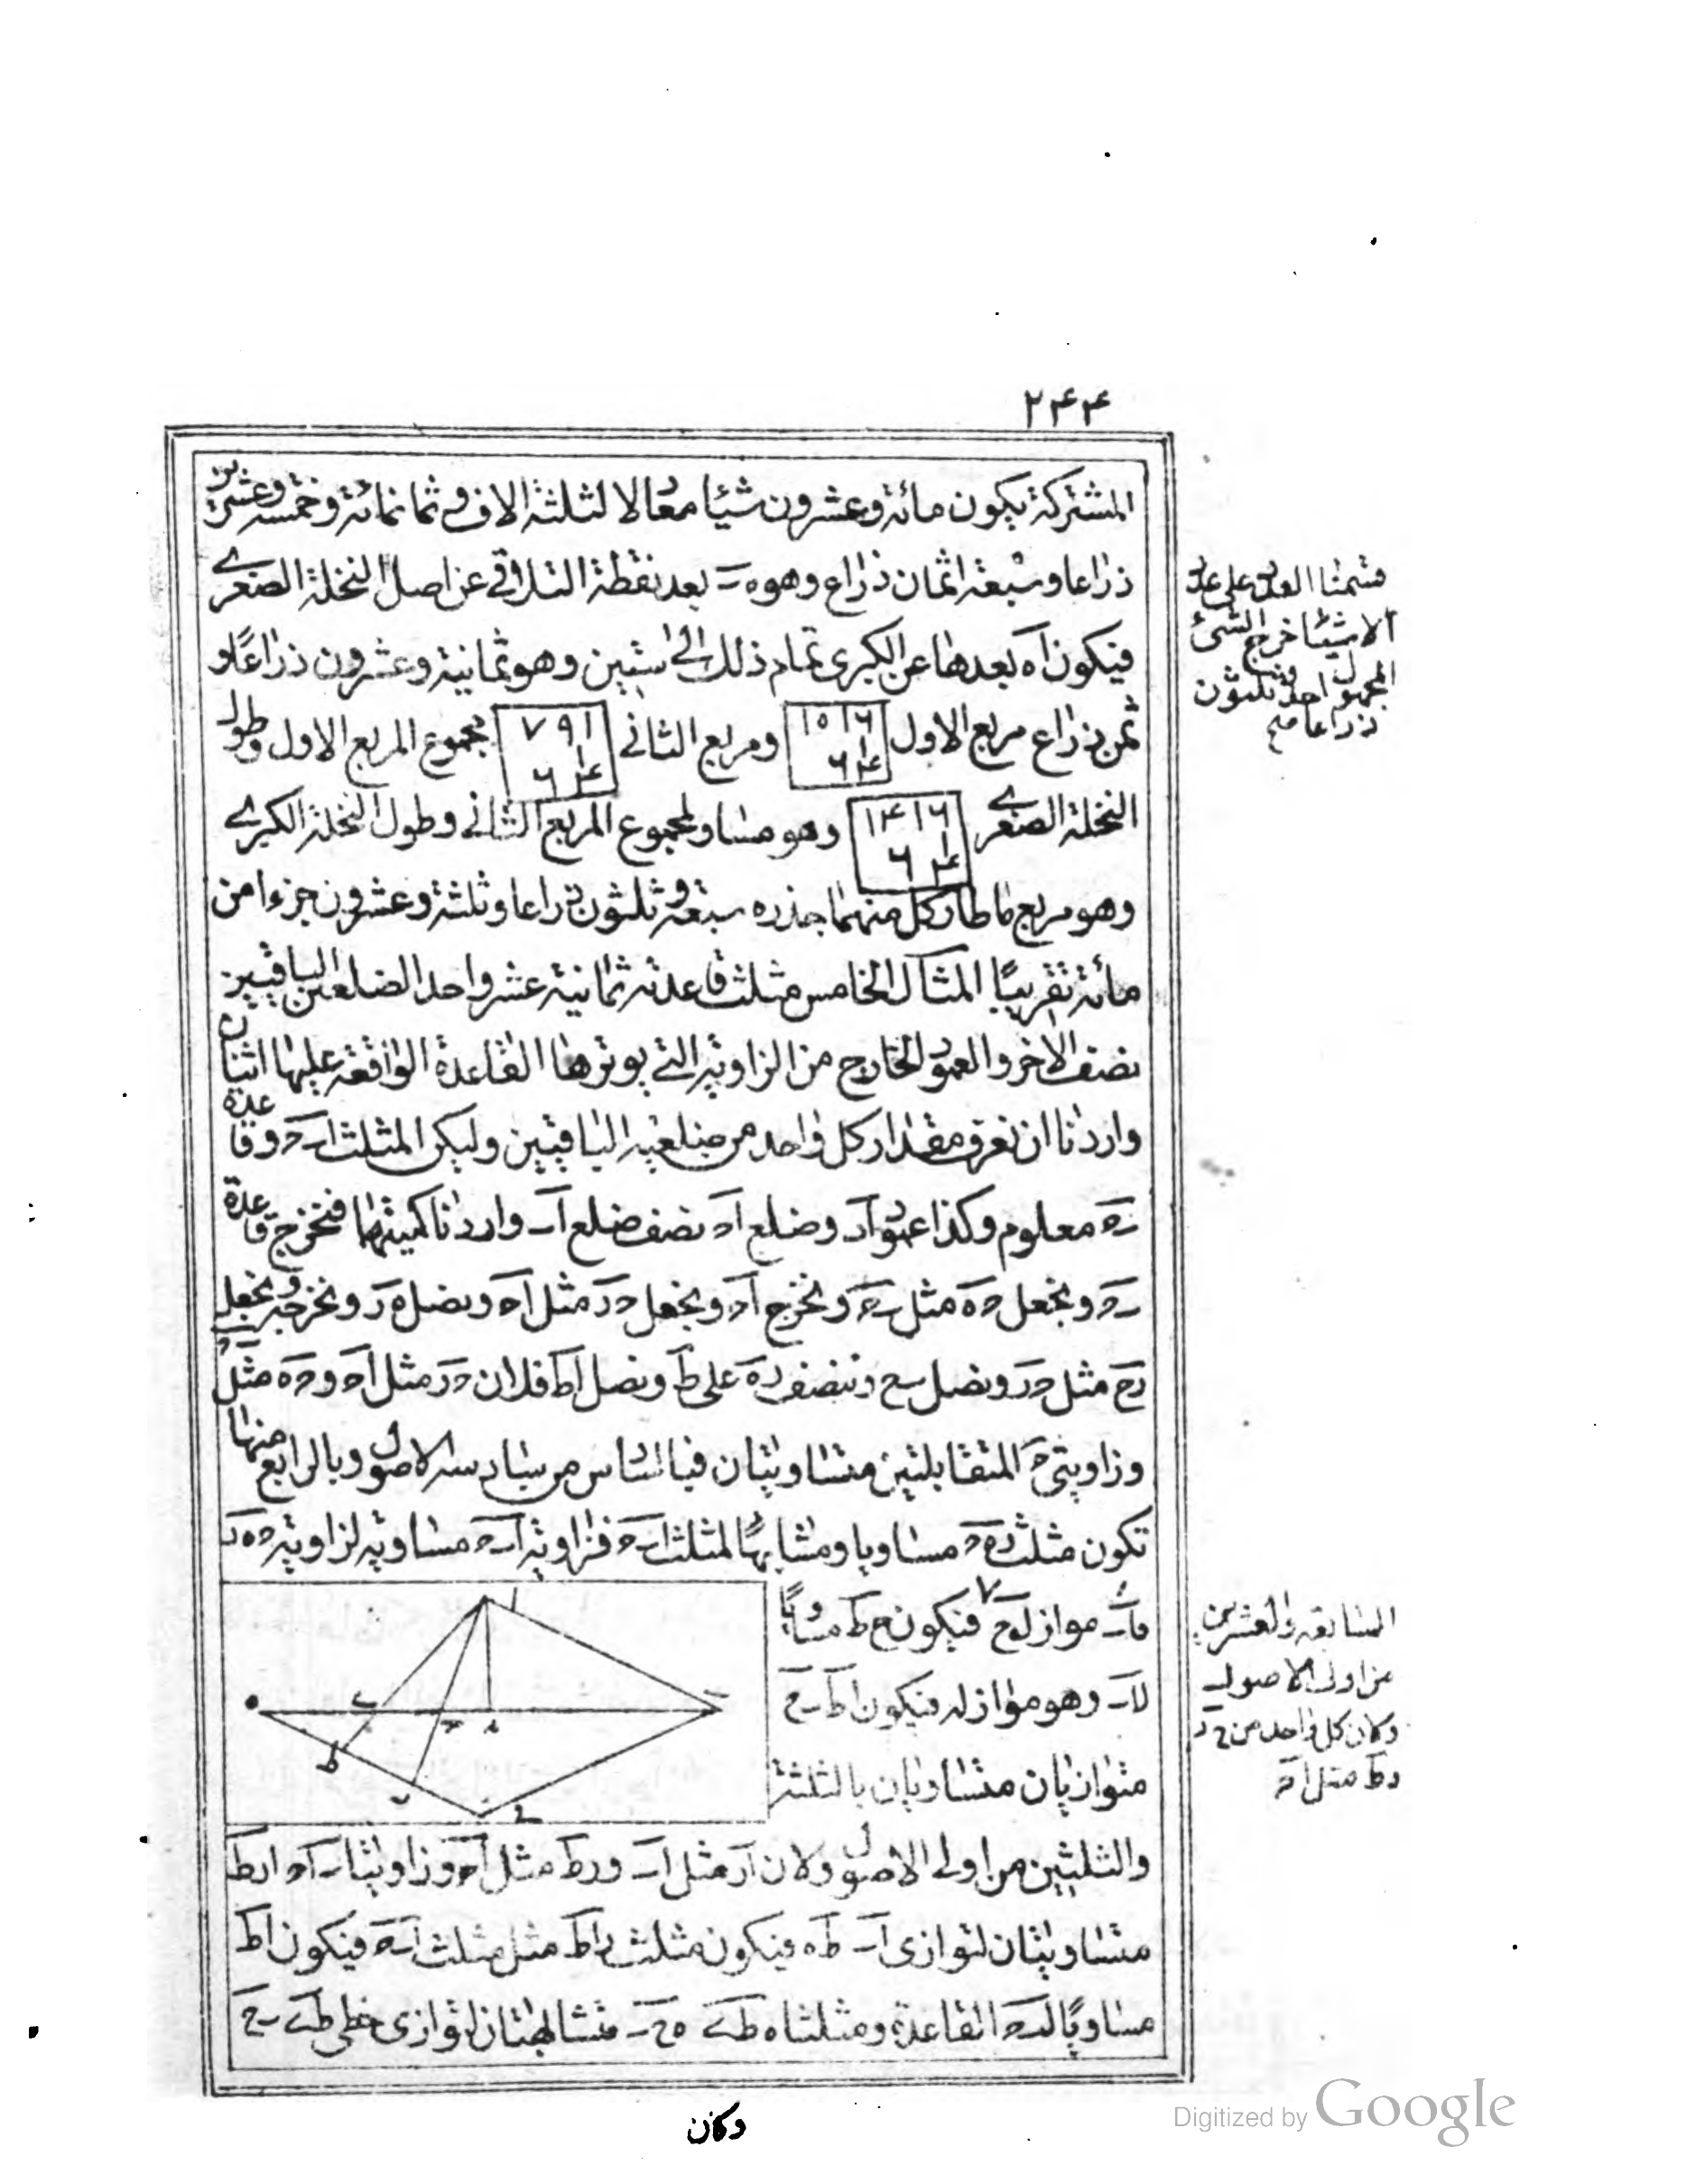 ٢٤٤
المشتركة يكون مائة وعشرون شيئا معادلا لثلثة الاف وثمانمائة وخمسة وعشرين
ذراعا وسبعة اثمان ذراع وهو ه ب بعد نقطة التلاقى عن اصل النخلة الصغرے
فيكون اه بعدها عن الكبرى تمام ذلك الى ستين وهو ثمانية وعشرون ذراعًا و
ثمن ذراع مربع الاول ١٠١٦ ٤١ ٦ ومربع الثانى ٧٩١ ٤١ ٦ مجموع المربع الاول وطول
النخلة الصغرے ١٤١٦ ٤١ ٦ وهو مساو لمجموع المربع الثانى وطول النخلة الكبرے
وهو مربع ما طار كل منهما جذره سبعة وثلثون ذراعا وثلثة وعشرون جزءا من
مائة تقريبًا المثال الخامس مثلث قاعدته ثمانية عشر واحد الضلعين الباقيين
نصف الاخر والعمود الخارج من الزاوية التى يوترها القاعدة الواقعة عليها اثنان
واردنا ان نعرف مقدار كل واحد من ضلعيه الباقيين وليكن المثلث ا ب ح وقاعدة
ب ح معلوم وكذا عمود ا د وضلع ا ح نصف ضلع ا ب واردنا كميتهما فنخرج قاعدة
ب ح ونجعل ح ه مثل ب ح ونخرج ا ح ونجعل ح ر مثل ا ح ونصل ه ر ونخرجه ونجعل
ر ح مثل ح ر ونصل ب ح وننصف ر ه على ط ونصل ا ط فلان ح ر مثل ا ح و ح ه مثل ب ح
وزاويتى ح المتقابلتين متساويتان فبالسادس من سادسة الاصول وبالرابع منها
تكون مثلث ر ه ح مساويا ومشابها لمثلث ا ب ح فزاوية ا ب ح مساوية لزاوية ح ه ر
فا ب مواز له ح فيكون ح ط مساويًا
لا ب وهو مواز له فيكون ا ط ب ح
متوازيان متساويان بالثلثة
والثلثين من اولى الاصول ولان ا ر مثل ا ب و ر ط مثل ا ح وزاويتا ب ا ح ا ر ط
متساويتان لتوازى ا ب ط ه فيكون مثلث ر ا ط مثل مثلث ا ب ح فيكون ا ط
مساويًا ل ب ح القاعدة ومثلثا ه ط ے ه ح ب متشابهتان لتوازى خطى ط ے ب ح
وكان
فقسمنا العدد على عدد
الاشيئا خرج الشئ
المجهول احد وثلثون
ذراعا
السابعة والعشرين
من اولى الاصول
وكان كل واحد من ح ر
ر ط مثل ا ح
Digitized by Google